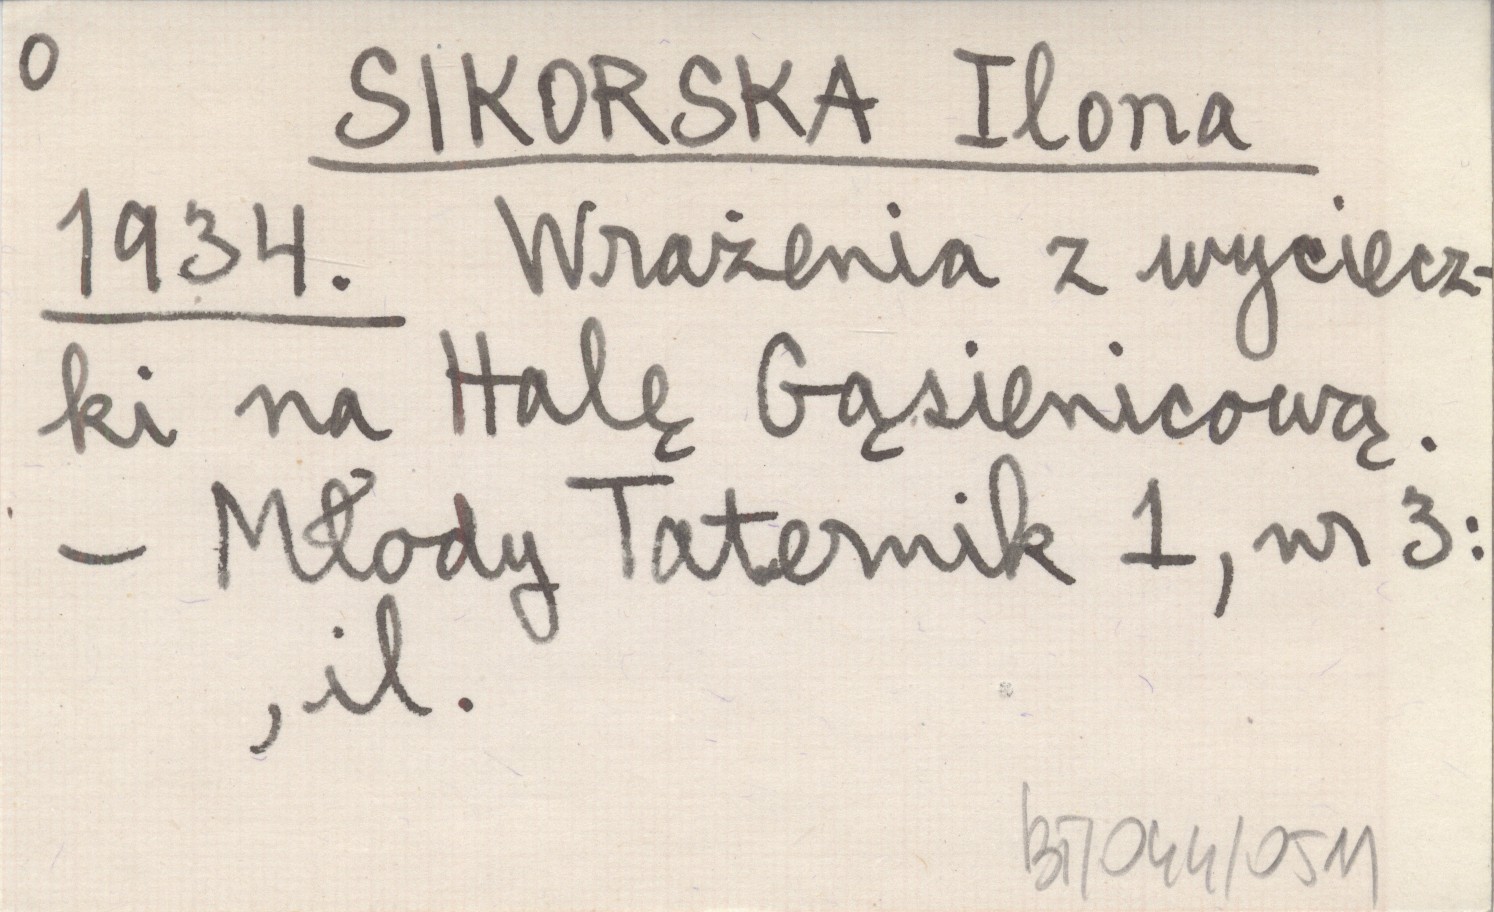 O
SIKORSKA Ilona
1934. Wrażenia z wyciecz-
ki na Halę Gąsienicową.
- Młody Taternik 1, nr 3:
, il.
BT/044/0511